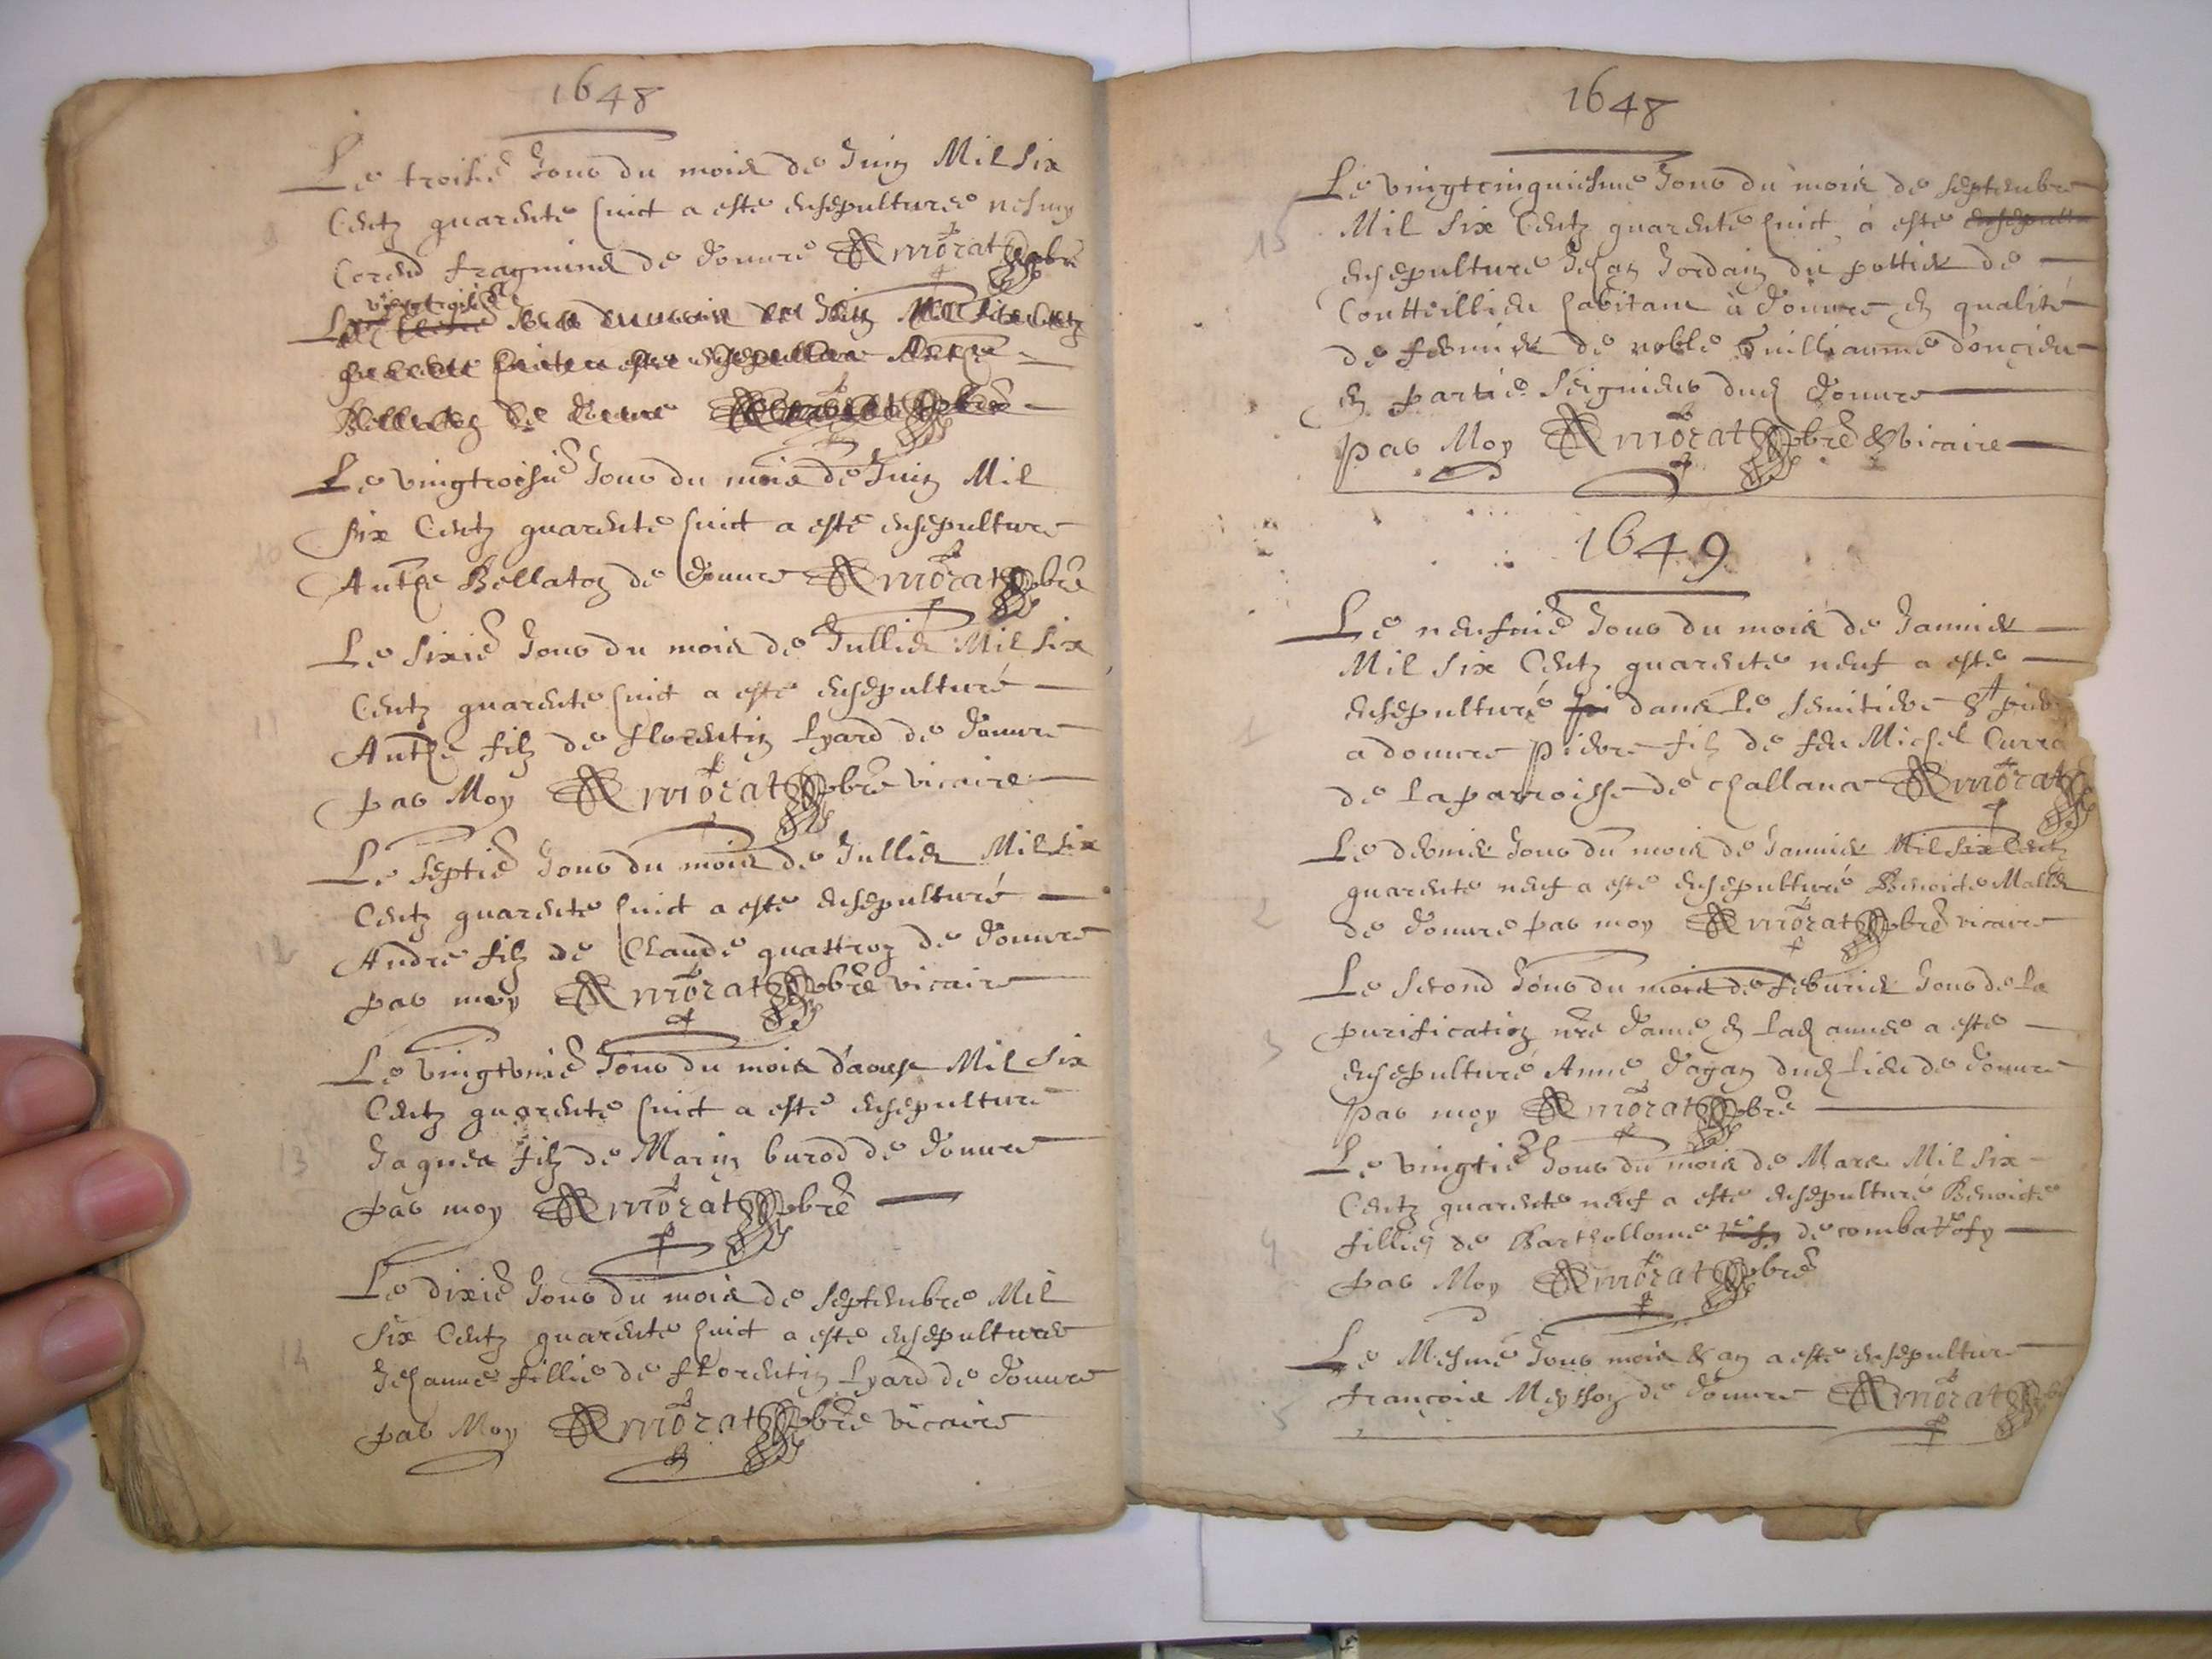 1648
Le troisie Jour du mois de Juin Mil Six
9
Centz quarente huict a esté ensepulturee
de Douure Amorat pbre
vingtroisie
Le Jour du mois de Juin Mil Six Centz
quarente huict a esté ensepulture Anthe
Bellaton de Douure
Le vingtroisie Jour du mois de Juin Mil
Six Centz quarente huict a esté ensepulture
10
Anthe Bellaton de Douure Amorat pbre
Le Sixie Jour du mois de Jullier Mil Six
Centz quarente huict a esté ensepulturé
11
Anthe filz de florentin Lyard de Douure
par Moy Amorat pbre vicaire
Le Septie Jour du mois de Jullier Mil Six
Centz quarente huict a esté ensepulturé
12
André filz de Claude quattroz de Douure
par moy Amorat pbre vicaire
Le vingtunie Jour du mois d'aoust Mil Six
Centz quarente huict a esté ensepulturé
13
Jaques filz de Marin burod de Douure
par moy Amorat pbre
Le dixie Jour du mois de Septembre Mil
Six Centz quarente huict a esté ensepulturee
14
Jehanne fillie de florentin Lyard de Douure
par Moy Amorat pbre vicaire
1648
Le vingtcinquiesme Jour du mois de Septembre
15
Mil Six Centz quarente huict a esté ensepultu
ensepulture Jehan Jordain du pottier de
Coutteillieu habitant à Douure en qualité
de fermier de noble Guilliaume d'oncieu
en partie Seignieur dud Douure
par Moy Amorat pbre & vicaire
1649
Le neufuie Jour du mois de Januier
Mil Six Centz quarente neuf a esté
ensepulturé dans le Semitiere St pier
1
a douure pierre filz de feu Michel Curra
de la parroisse de challana Amorat
Le dernier Jour du mois de Januier Mil Six Centz
quarente neuf a esté ensepulturé Benoicte Mallet
2
de Douure par moy Amorat pbre vicaire
Le Second Jour du mois de feburier Jour de la
purification nre Dame en lad année a esté
3
ensepulturé Anne Dagan dud lieu de Douure
par moy Amorat pbre
Le vingtie Jour du mois de Mars Mil Six
Centz quarente neuf a esté ensepulturé Benoicte
4
fillie de Barthollome de combatefy
par Moy Amorat pbre
Le Mesme Jour mois & an a esté ensepulturé
5
françois Meython de Douure Amorat pb